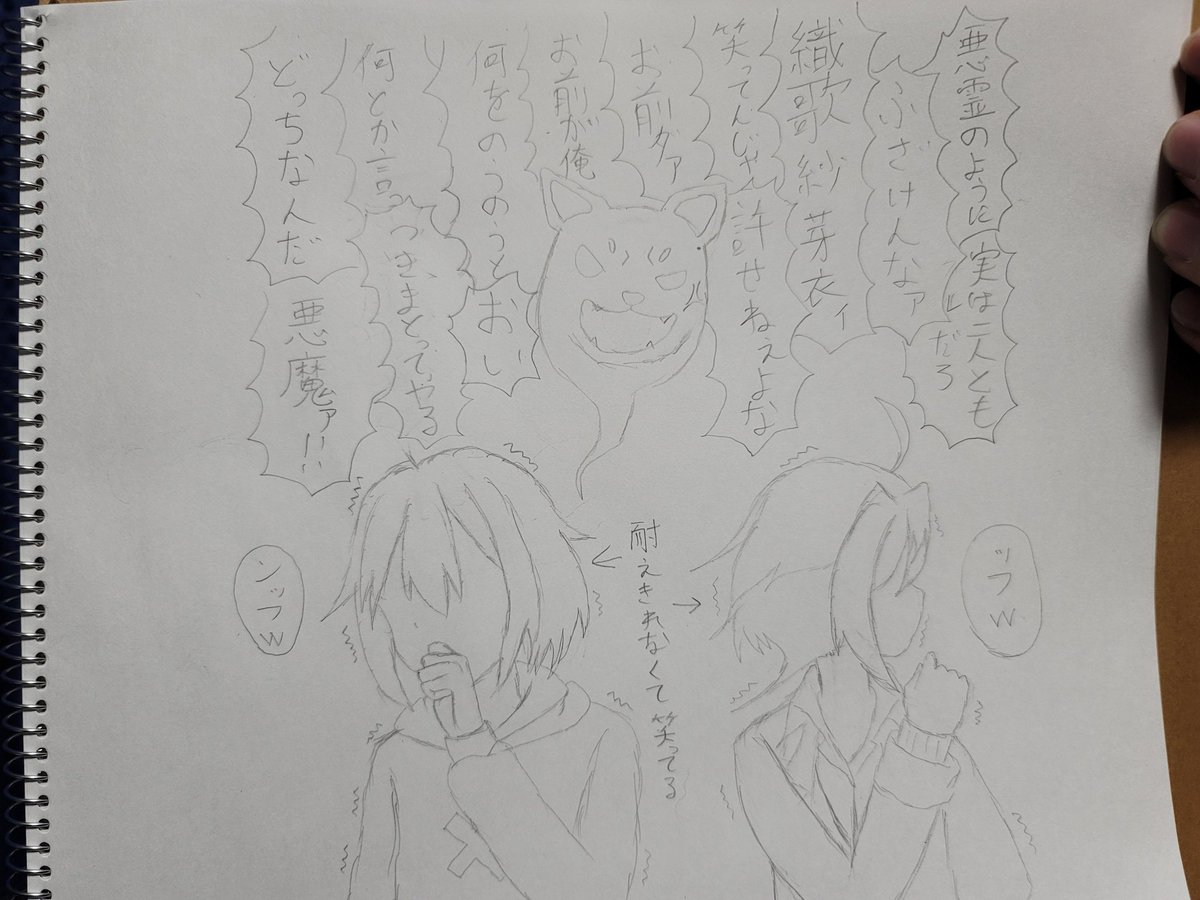 悪霊のように
実は二人とも
ﾙだろ
ふざけんなァ
織歌紗芽衣ィ
笑ってんじゃ
許せねえよな
お前ダァ
お前が俺
何をのうのうと
おい
り
何とか言
つきまとってやる
どっちなんだ
悪魔ァ!!
耐えきれなくて笑ってる
←
→
ンッフw
ッフw